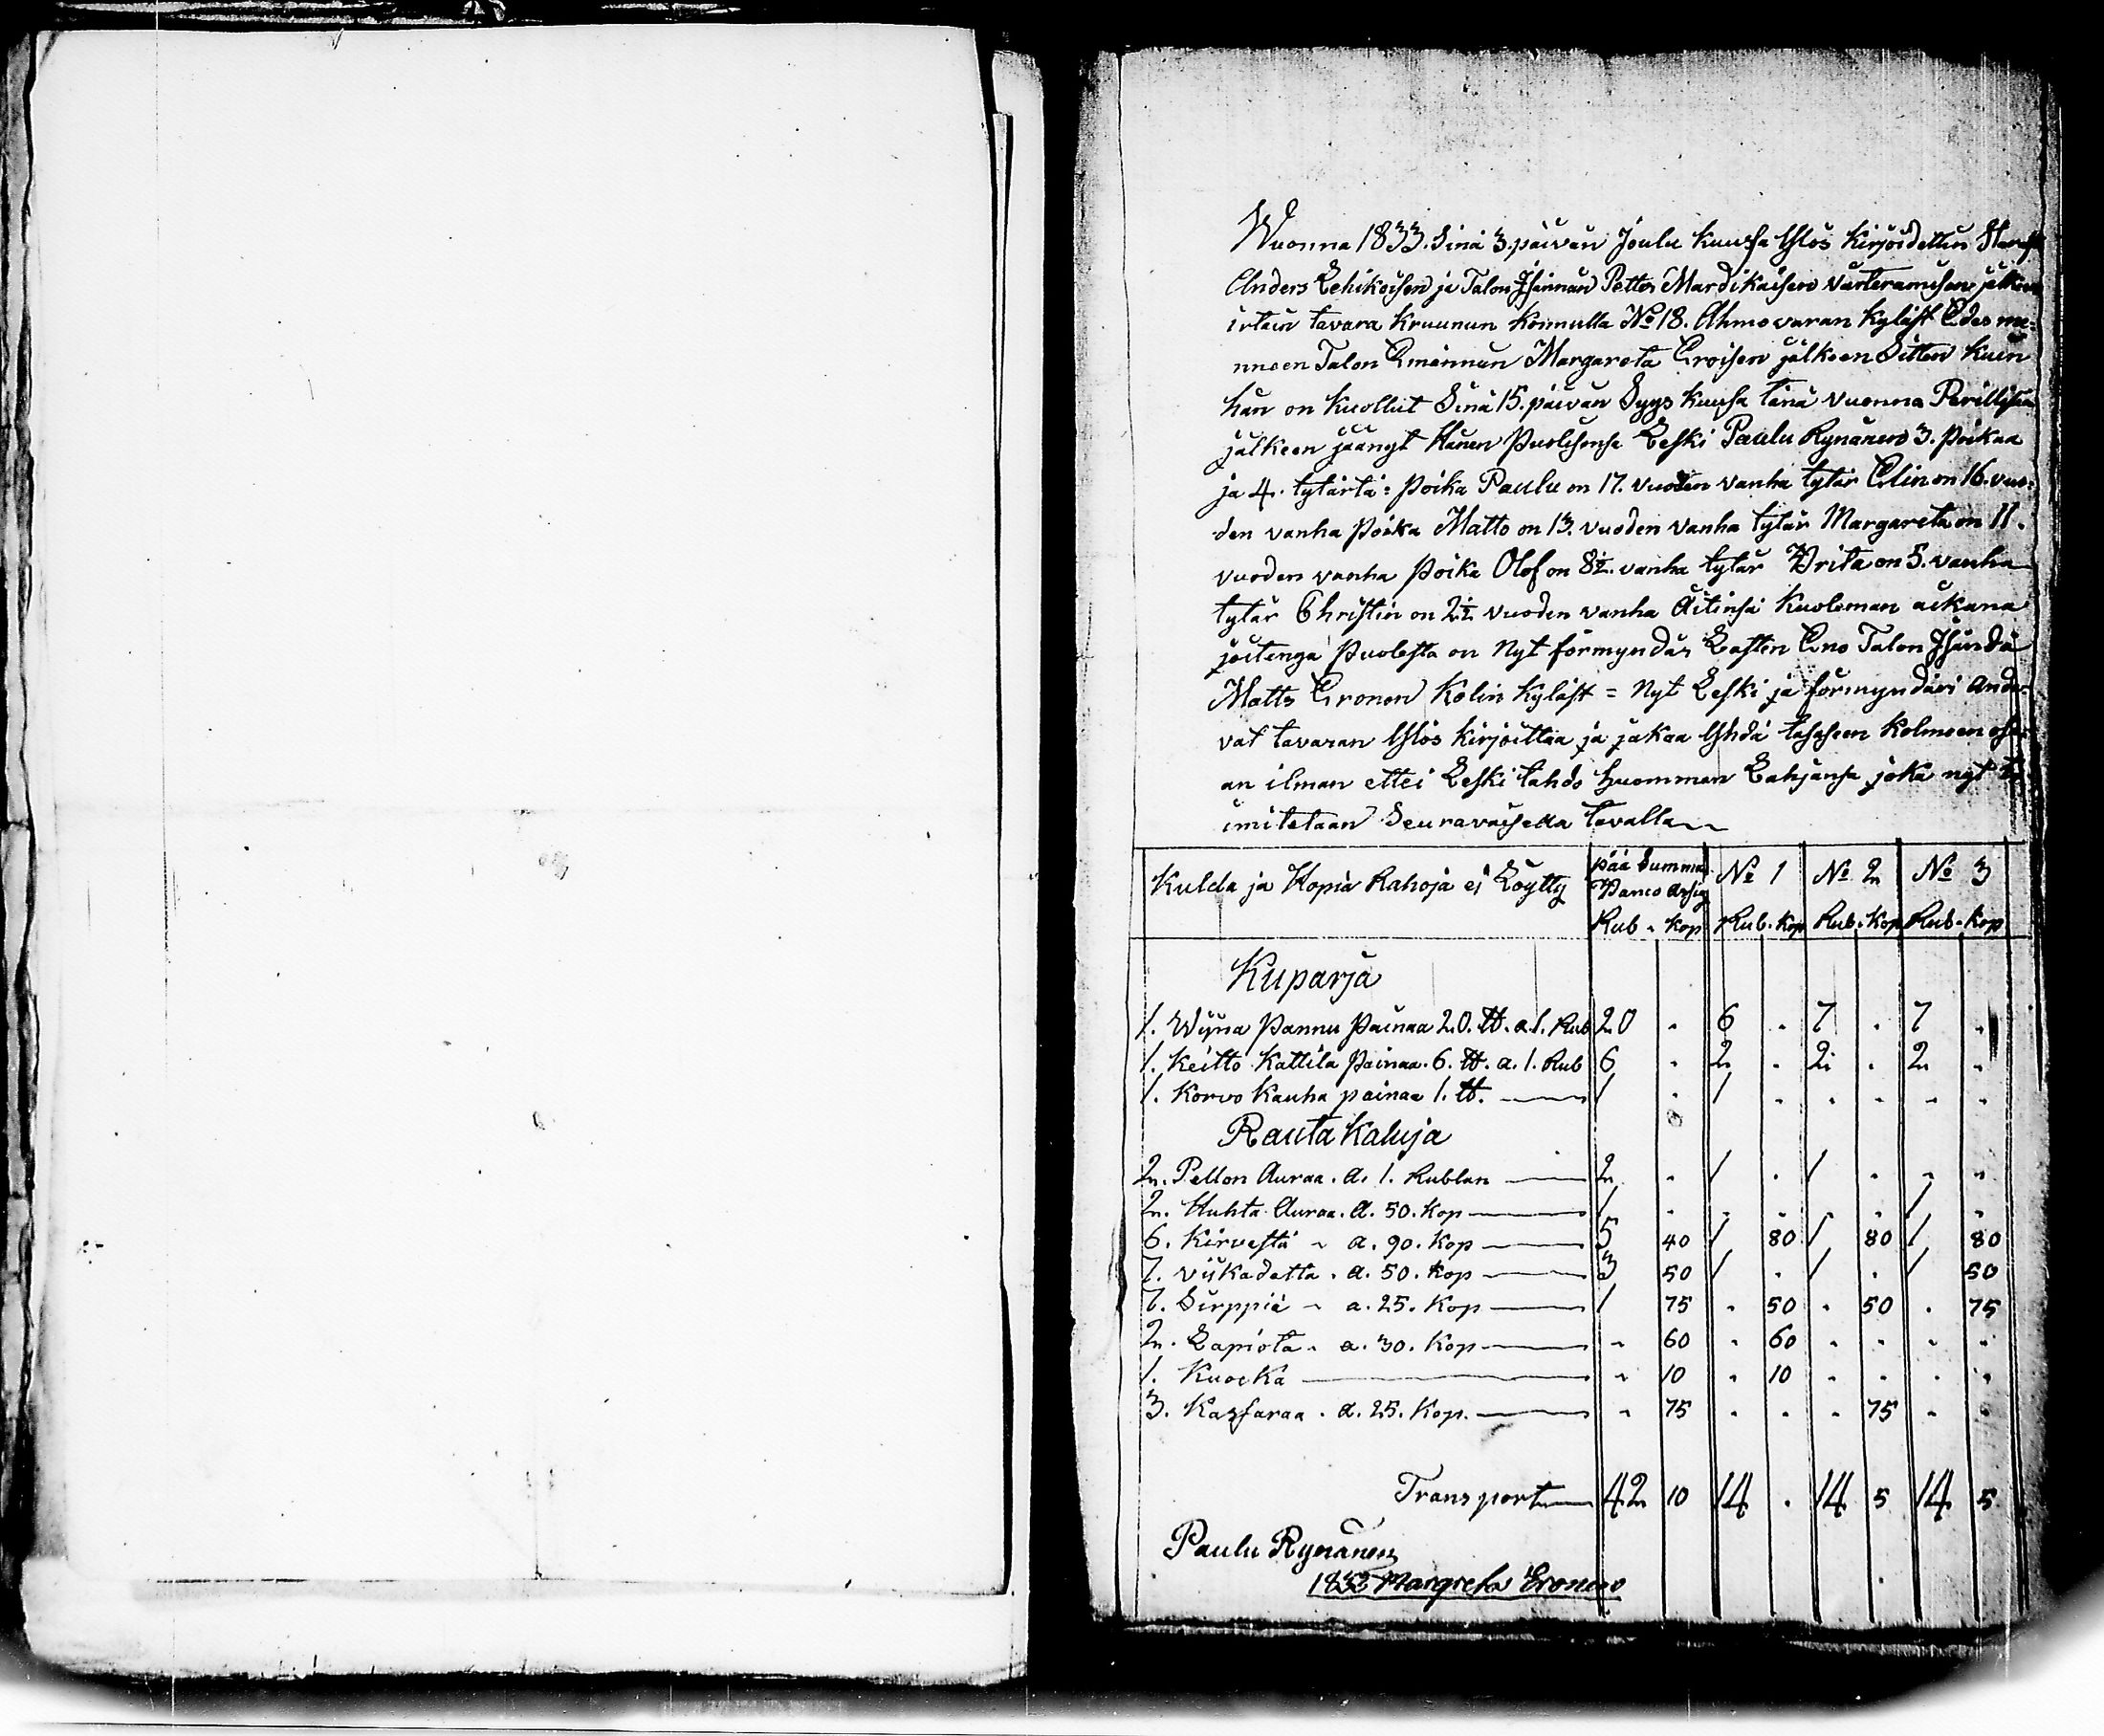 Wuonna 1833. Sinä 3. päivän Joulu kuussa Ylös kirjoidettin
Anders Lehikoisen ja Talon Isännän Petter Mardikaisen värteramisen jälken
irtain tavara kruunun konnulla No 18. Ahmovaran kyläst Edes me-
nneen Talon Emännän Margareta Eroisen jälkeen Sitten kuin
hän on kuollut Sinä 15. päivän Syys kuusa tänä vuonna Perillisiä
jälkeen jäänyt Hänen Puolisonsa Leski Paulu Rynänen 3. poikaa
ja 4. tytärtä = poika Paulu on 17. vuoden vanha tytär Elin on 16. vuo-
den vanha poika Matts on 13. vuoden vanha tytär Margareta on 11.
vuoden vanha poika Olof on 8½. vanha tytär Brita on 5. vanha
tytär Christin on 2½ vuoden vanha äitinsä kuoleman aikana
joitenga puolesta on Nyt förmyndär Lasten Eno Talon Isändä
Matts Eronen Kolin kyläst = Nyt Leski ja förmyndäri anda-
vat tavaran Ylös kirjoittaa ja jakaa Yhdä tasaseen kolmeen osa-
an ilman ettei Leski tahdo huommen Lahjansa joka nyt to-
imitetaan Seuravaisella tavalla
Kulda ja Hopia Rahoja ei Löytty pää Summa Banco Assig No 1 No 2 No 3
Rub. kop Rub. kop Rub. kop Rub. kop
Kuparia
1. Wijna pannu painaa 20. ℔. a 1. Rub 20 . 6 . 7 . 7 .
1. Keitto kattila painaa. 6. ℔. a. 1. Rub 6 . 2 . 2 . 2 .
1. Korvo kauha painaa 1. ℔. 1 . 1 . . . . .
Rauta kaluja
2. Pellon Auraa. a. 1. Rublan 2 . 1 . 1 . . .
2. Huhta Auraa. a. 50. kop 1 . . . . . 1 .
6. Kirvestä - a. 90. kop 5 40 1 80 1 80 1 80
7. viikadetta. a. 50. kop 3 50 1 . 1 . 1 50
7. Sirppiä - a. 25. kop 1 75 . 50 . 50 . 75
2. Lapiota. a. 30. kop . 60 . 60 . . . .
1. Kuocka . 10 . 10 . . . .
3. Kassaraa. a. 25. kop. . 75 . . . 75 . .
Transport 42 10 14 . 14 5 14 5
Paulu Rynänen
1833 Margreta Eronen